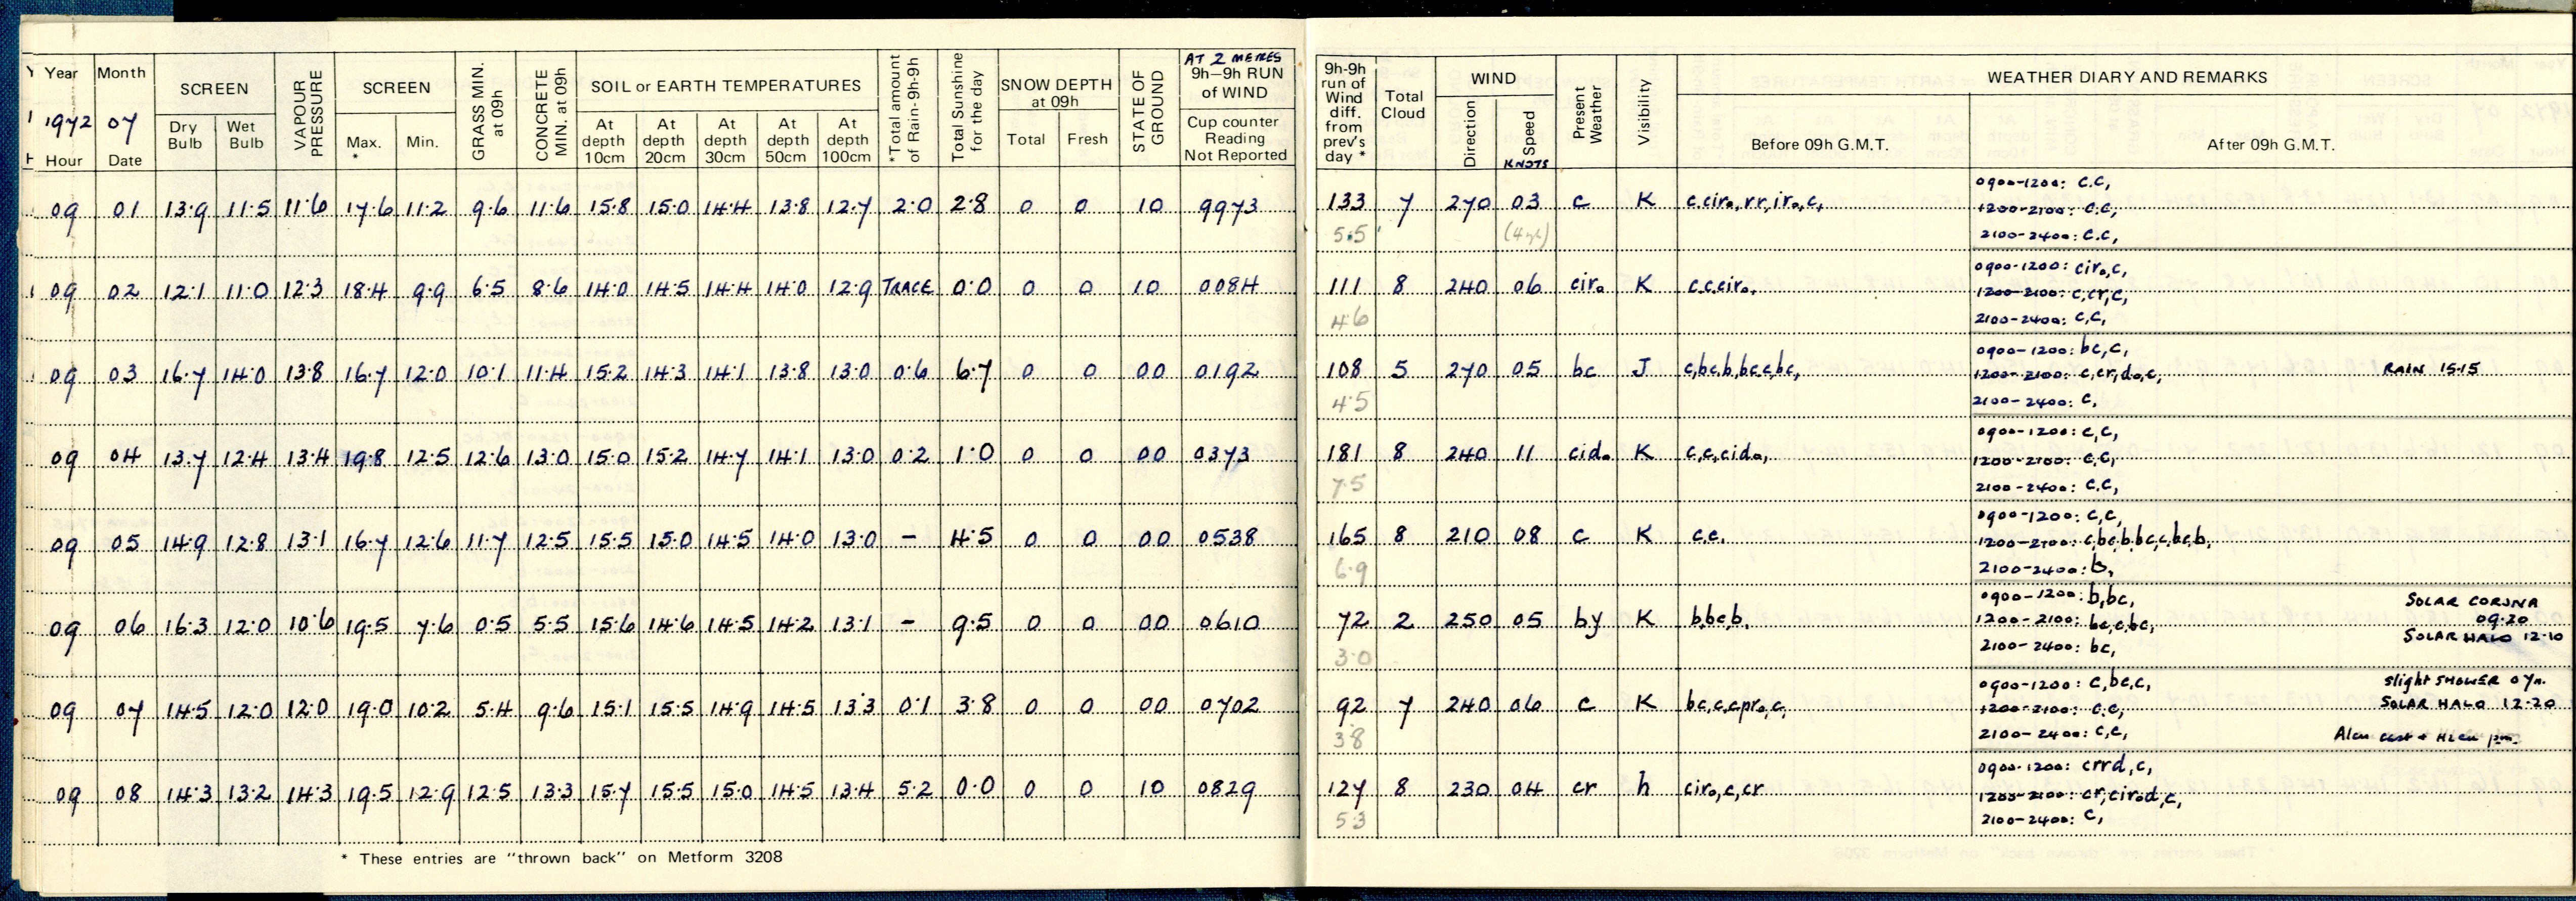 Year Month SCREEN VAPOUR PRESSURE SCREEN GRASS MIN. at 09h CONCRETE MIN. at 09h SOIL or EARTH TEMPERATURES *Total amount of Rain-9h-9h Total Sunshine for the day SNOW DEPTH at 09h STATE OF GROUND AT 2 METRES 9h-9h RUN of WIND
1972 07 Dry Bulb Wet Bulb Max. * Min. At depth 10cm At depth 20cm At depth 30cm At depth 50cm At depth 100cm Total Fresh Cup counter Reading Not Reported
Hour Date
09 01 13.9 11.5 11.6 17.6 11.2 9.6 11.6 15.8 15.0 14.4 13.8 12.7 2.0 2.8 0 0 10 9973
09 02 12.1 11.0 12.3 18.4 9.9 6.5 8.6 14.0 14.5 14.4 14.0 12.9 TRACE 0.0 0 0 10 0084
09 03 16.7 14.0 13.8 16.7 12.0 10.1 11.4 15.2 14.3 14.1 13.8 13.0 0.6 6.7 0 0 00 0192
09 04 13.7 12.4 13.4 19.8 12.5 12.6 13.0 15.0 15.2 14.7 14.1 13.0 0.2 1.0 0 0 00 0373
09 05 14.9 12.8 13.1 16.7 12.6 11.7 12.5 15.5 15.0 14.5 14.0 13.0 - 4.5 0 0 00 0538
09 06 16.3 12.0 10.6 19.5 7.6 0.5 5.5 15.6 14.6 14.5 14.2 13.1 - 9.5 0 0 00 0610
09 07 14.5 12.0 12.0 19.0 10.2 5.4 9.6 15.1 15.5 14.9 14.5 13.3 0.1 3.8 0 0 00 0702
09 08 14.3 13.2 14.3 19.5 12.9 12.5 13.3 15.7 15.5 15.0 14.5 13.4 5.2 0.0 0 0 10 0829
* These entries are "thrown back" on Metform 3208
9h-9h run of Wind diff. from prev's day * Total Cloud WIND Present Weather Visibility WEATHER DIARY AND REMARKS
Direction Speed KNOTS Before 09h G.M.T. After 09h G.M.T.
0900-1200: c.c,
133 7 270 03 c K c.ciro,rr,iro,c, 1200-2100: c.c,
5.5 2100-2400: c.c,
0900-1200: ciro,c,
111 8 240 06 ciro K c.c.ciro, 1200-2100: c,cr,c,
4.6 2100-2400: c,c,
0900-1200: bc,c,
108 5 270 05 bc J c,bc,b,bc,c,bc, 1200-2100: c,cr,do,c, RAIN 15.15
4.5 2100-2400: c,
0900-1200: c,c,
181 8 240 11 cido K c,c,cido, 1200-2100: c,c,
7.5 2100-2400: c.c,
0900-1200: c,c,
165 8 210 08 c K c.c. 1200-2100: c,bc,b,bc,c,bc,b,
6.9 2100-2400: b,
0900-1200: b,bc, SOLAR CORONA
72 2 250 05 by K b,bc,b, 1200-2100: bc,c,bc, 09.20
3.0 2100-2400: bc, SOLAR HALO 12.10
0900-1200: c,bc,c, slight SHOWER 07h.
92 7 240 06 c K bc,c,c,pro,c, 1200-2100: c.c, SOLAR HALO 12.20
3.8 2100-2400: c,c,
0900-1200: crrd,c,
127 8 230 04 cr h ciro,c,cr 1200-2100: cr,cirod,c,
5.3 2100-2400: c,